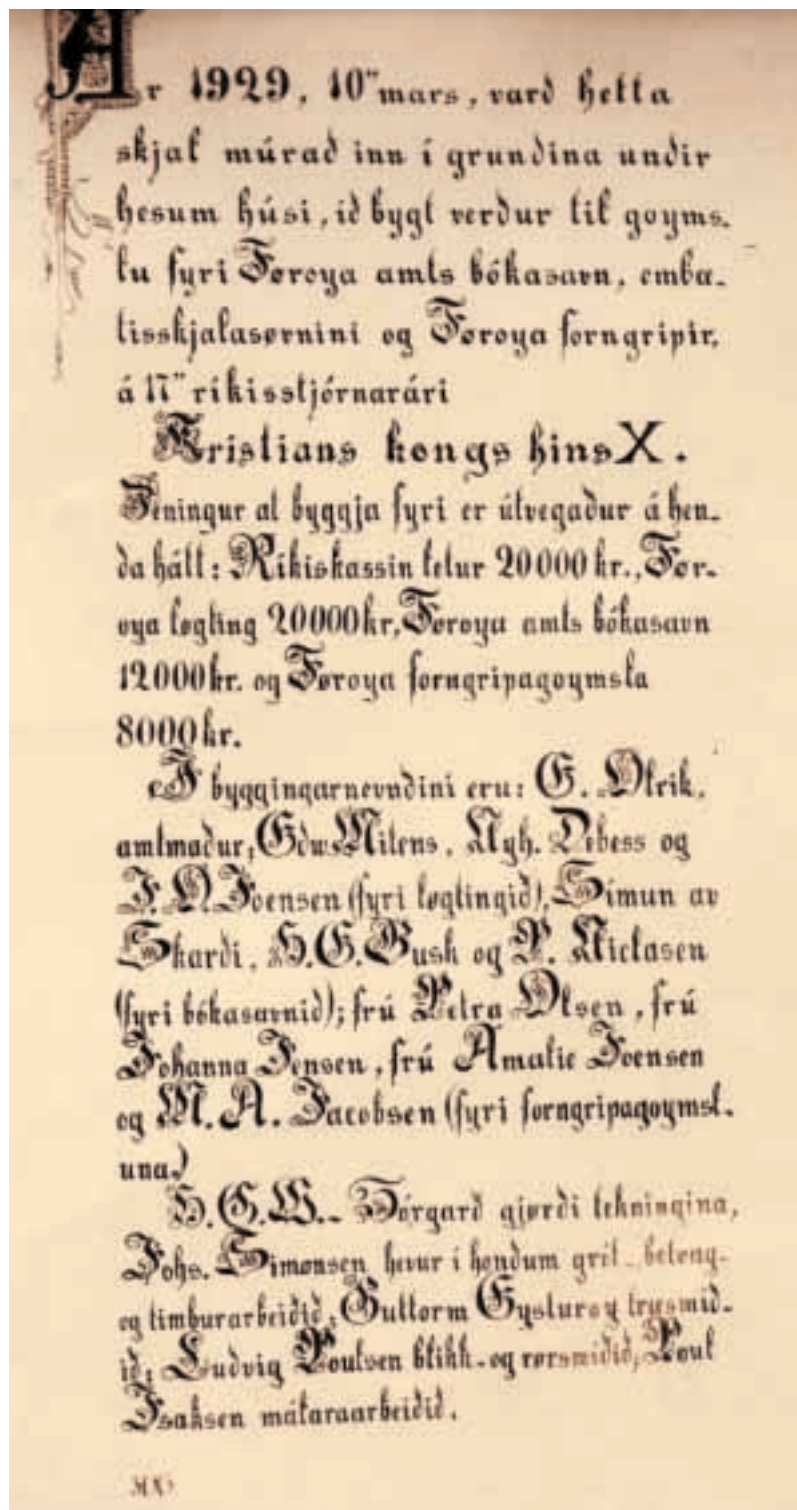 Ár 1929, 10" mars, varð hetta
skjal múrað inn í grundina undir
hesum húsi, ið bygt verður til goyms-
lu fyri Føroya amts bókasavn, embæ-
tisskjalasøvnini og Føroya forngripir,
á 17" ríkisstjórnarári
Kristians kongs hins X.
Peningur at byggja fyri er útvegaður á hen-
da hátt: Ríkiskassin letur 20000 kr., Før-
oya løgting 20000 kr, Føroya amts bókasavn
12000 kr. og Føroya forngripagoymsla
8000 kr.
Í byggingarnevndini eru: C. Olrik,
amtmaður, Edw. Mitens, Kgh. Debess og
J. D. Joensen (fyri løgtingið), Símun av
Skarði, H. C. Bush og P. Niclasen
(fyri bókasavnið); frú Petra Olsen, frú
Johanna Jensen, frú Amalie Joensen
og M. A. Jacobsen (fyri forngripagoymsl-
una)
H. C. W. Tórgarð gjørdi tekningina,
Johs. Simonsen hevur í hondum grót- betong-
og timburarbeiðið; Guttorm Eysturoy trysmið-
ið; Ludvig Poulsen blikk- og rørsmiðið; Poul
Isaksen málaraarbeiðið.